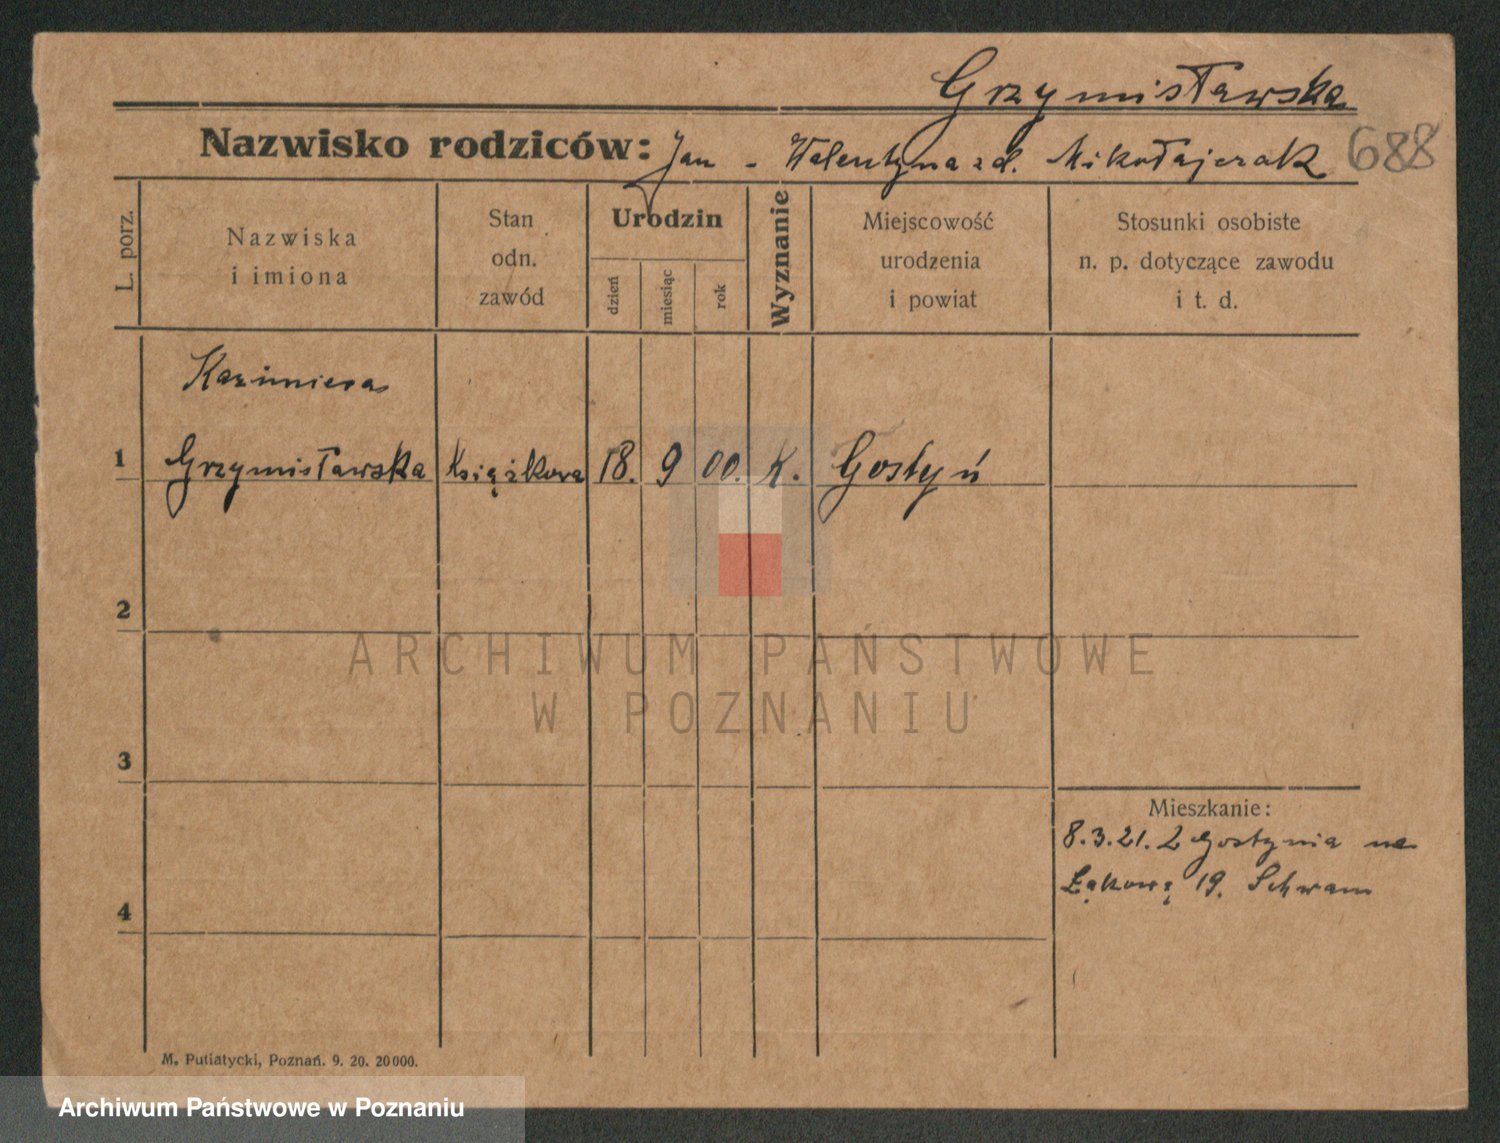 Grzymisławska
Nazwisko rodziców: Jan - Walentyna z d. Mikołajczak 688
L. porz.
Nazwiska
i imiona
Stan
odn.
zawód
Urodzin
dzień
miesiąc
rok
Wyznanie
Miejscowość
urodzenia
i powiat
Stosunki osobiste
n. p. dotyczące zawodu
i t. d.
Kazimiera
1 Grzymisławska Książkowa 18. 9 00. K. Gostyń
2
ARCHIWUM PAŃSTWOWE
W POZNANIU
3
Mieszkanie:
8.3.21. z Gostynia na
Łąkową 19. Schwam
4
M. Putiatycki, Poznań. 9. 20. 20000.
Archiwum Państwowe w Poznaniu